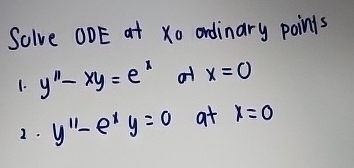 Solve ODE at x₀ ordinary points
1. y'' - xy = eˣ at x = 0
2. y'' - eˣ y = 0 at x = 0